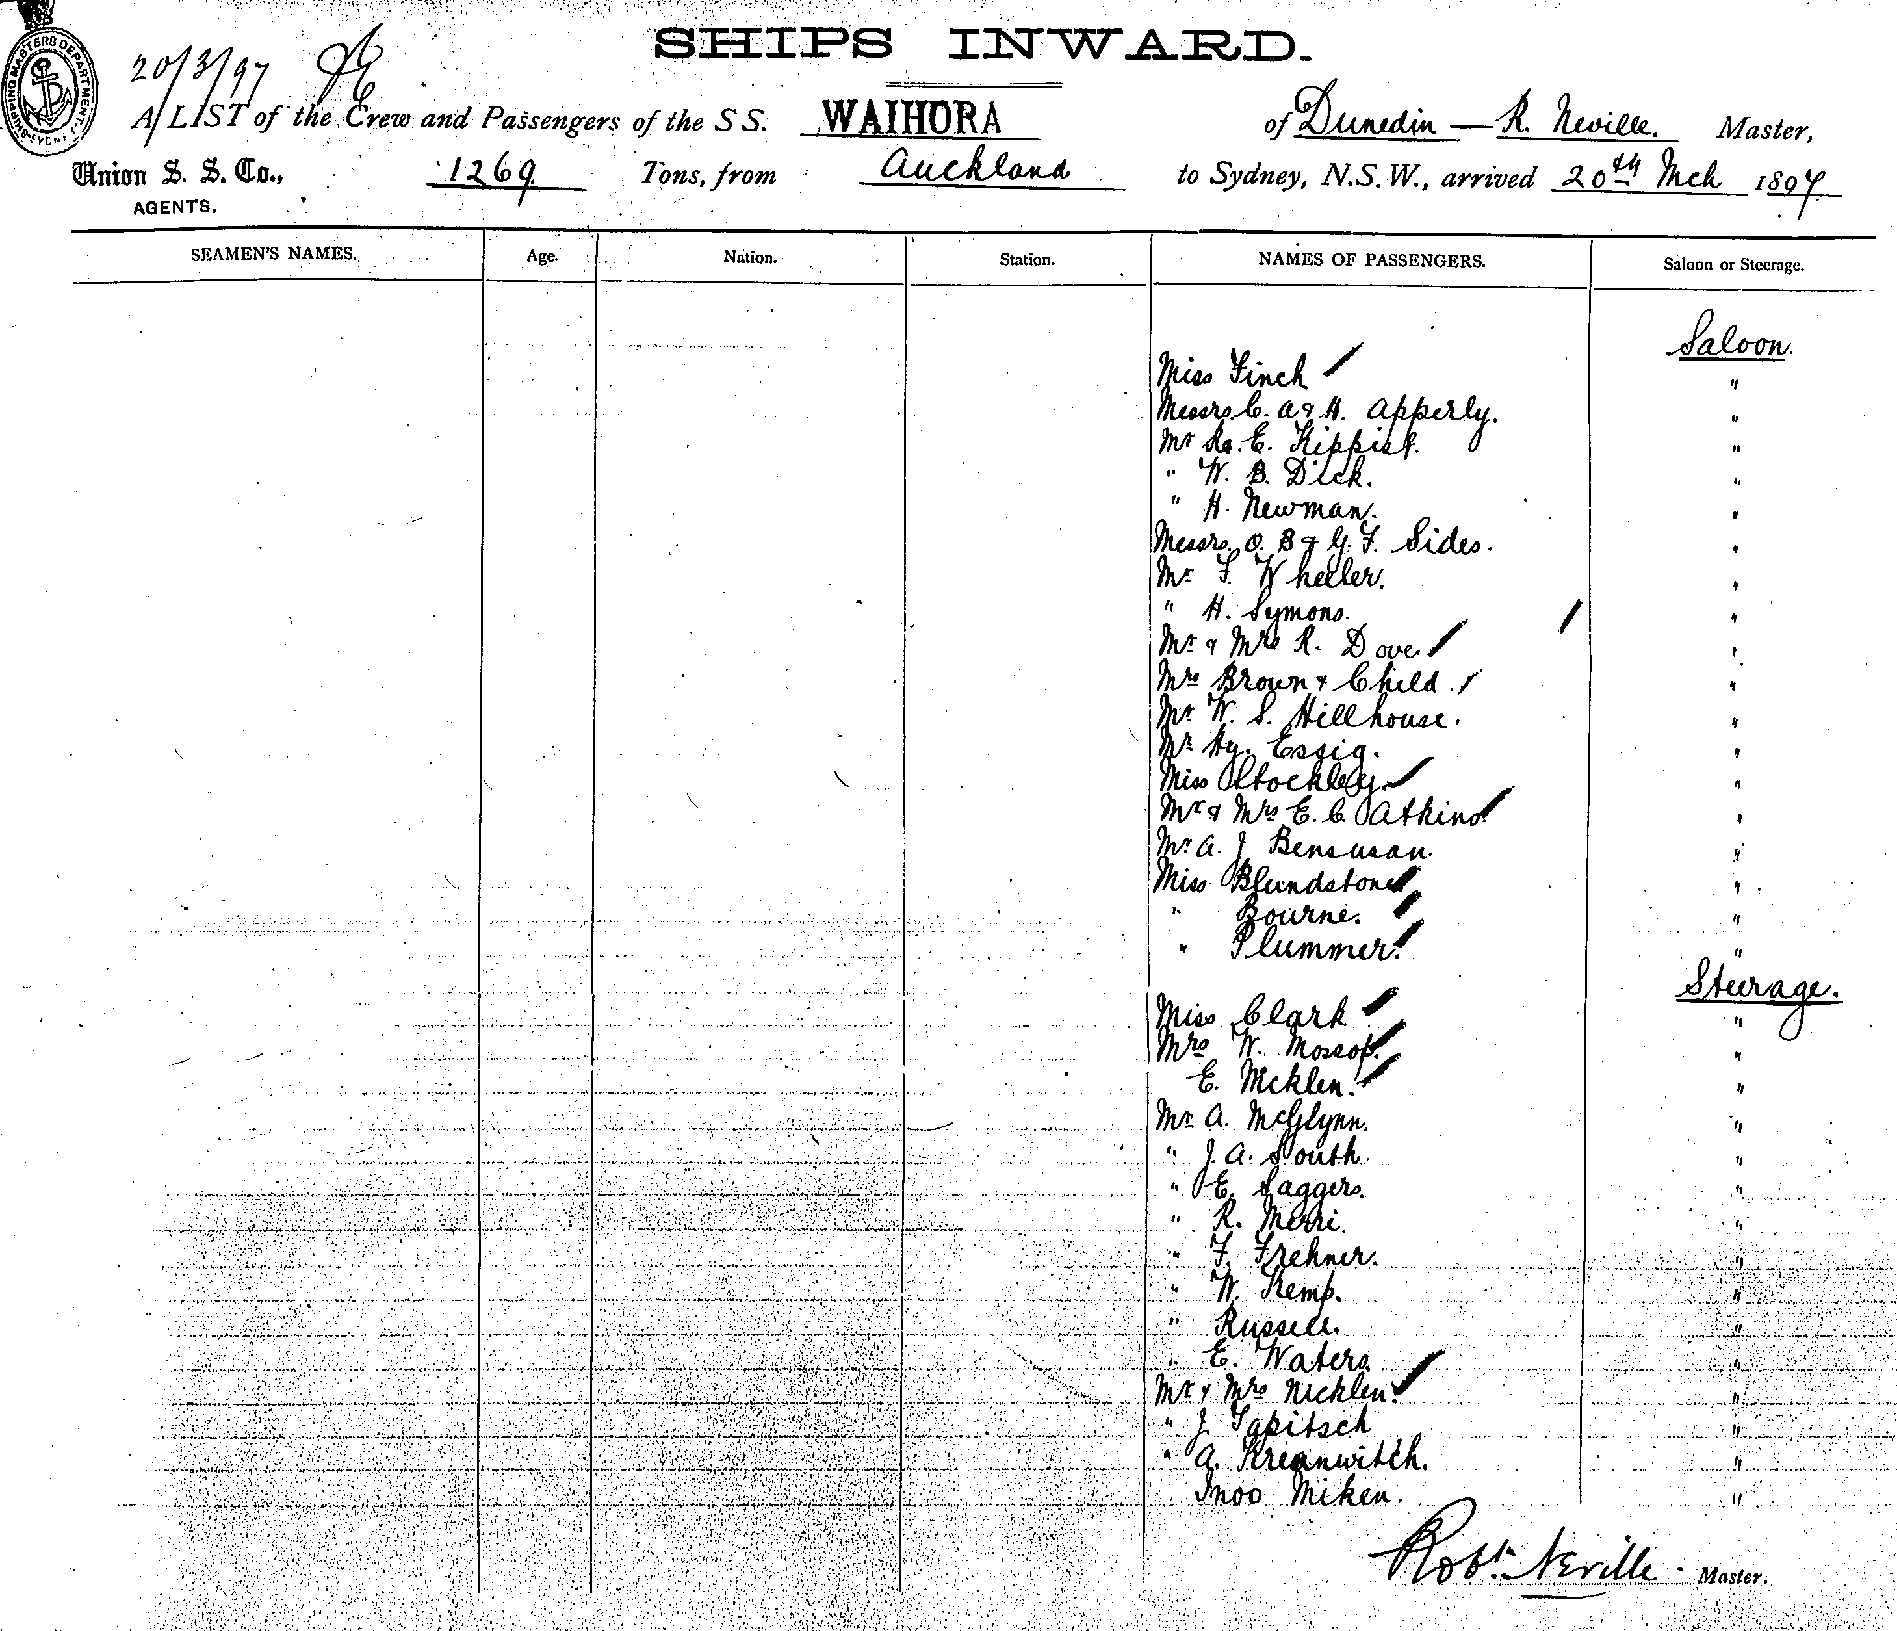 SHIPS INWARD.
SHIPPING MASTERS DEPARTMENT
20/3/97
A LIST of the Crew and Passengers of the S S. WAIHORA of Dunedin — R. Neville. Master,
Union S. S. Co., 1269 Tons, from Auckland to Sydney, N.S.W., arrived 20th Mch 1897
AGENTS.
SEAMEN'S NAMES. Age. Nation. Station. NAMES OF PASSENGERS. Saloon or Steerage.
Saloon.
Miss Finch "
Messrs C. A & H. Apperly. "
Mr E. Kippist. "
" W. B. Dick. "
" H. Newman. "
Messrs O. B & G. F. Sides. "
Mr F. Wheeler. "
" H. Symons. "
Mr & Mrs R. Dove "
Mrs Brown & Child. "
Mr W. S. Hillhouse. "
Mr Hy. Essig. "
Miss Stockley "
Mr & Mrs E. C. Atkins "
Mr A. J Bensusan. "
Miss Blundstone "
" Bourne. "
" Plummer. "
Steerage.
Miss Clark "
Mrs W. Moscop. "
E. Nicklen. "
Mr A. McGlynn. "
" J. A. South. "
" E. Saggers. "
" R. Merri. "
" F. Frehner. "
" W. Kemp. "
" Russell. "
" E. Waters "
Mr & Mrs Nicklen. "
" J Tapitsch "
" A. "
Miken. "
Robt. Neville. Master.